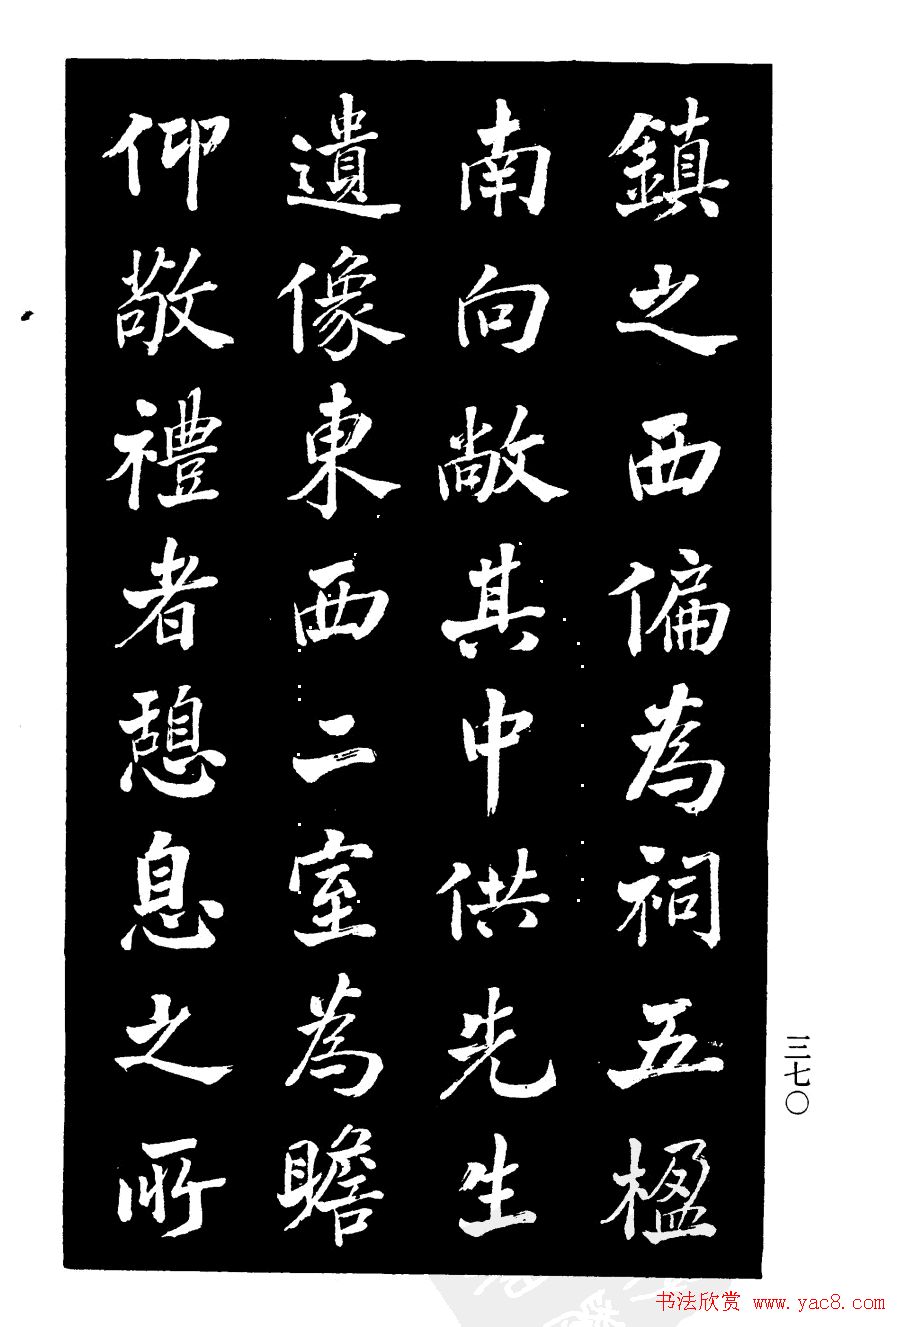 鎮之西偏為祠五楹
南向敞其中供先生
遺像東西二室為瞻
仰敬禮者憩息之所
三七〇
书法欣赏 www.yac8.com